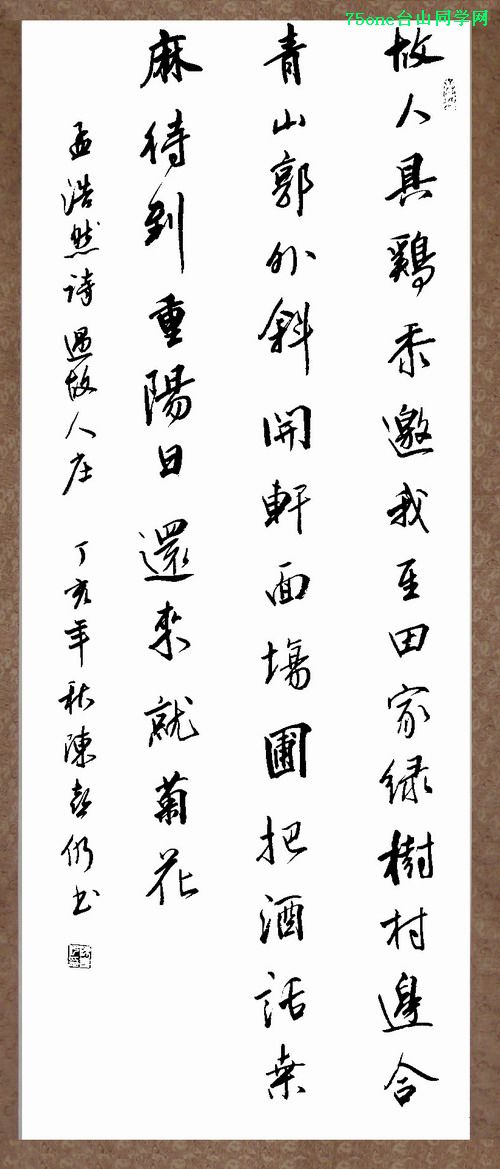 75one台山同学网
故人具鷄黍邀我至田家绿樹村邊合
青山郭外斜開軒面場圃把酒話桑
麻待到重陽日還來就菊花
孟浩然诗過故人庄 丁亥年秋陳书